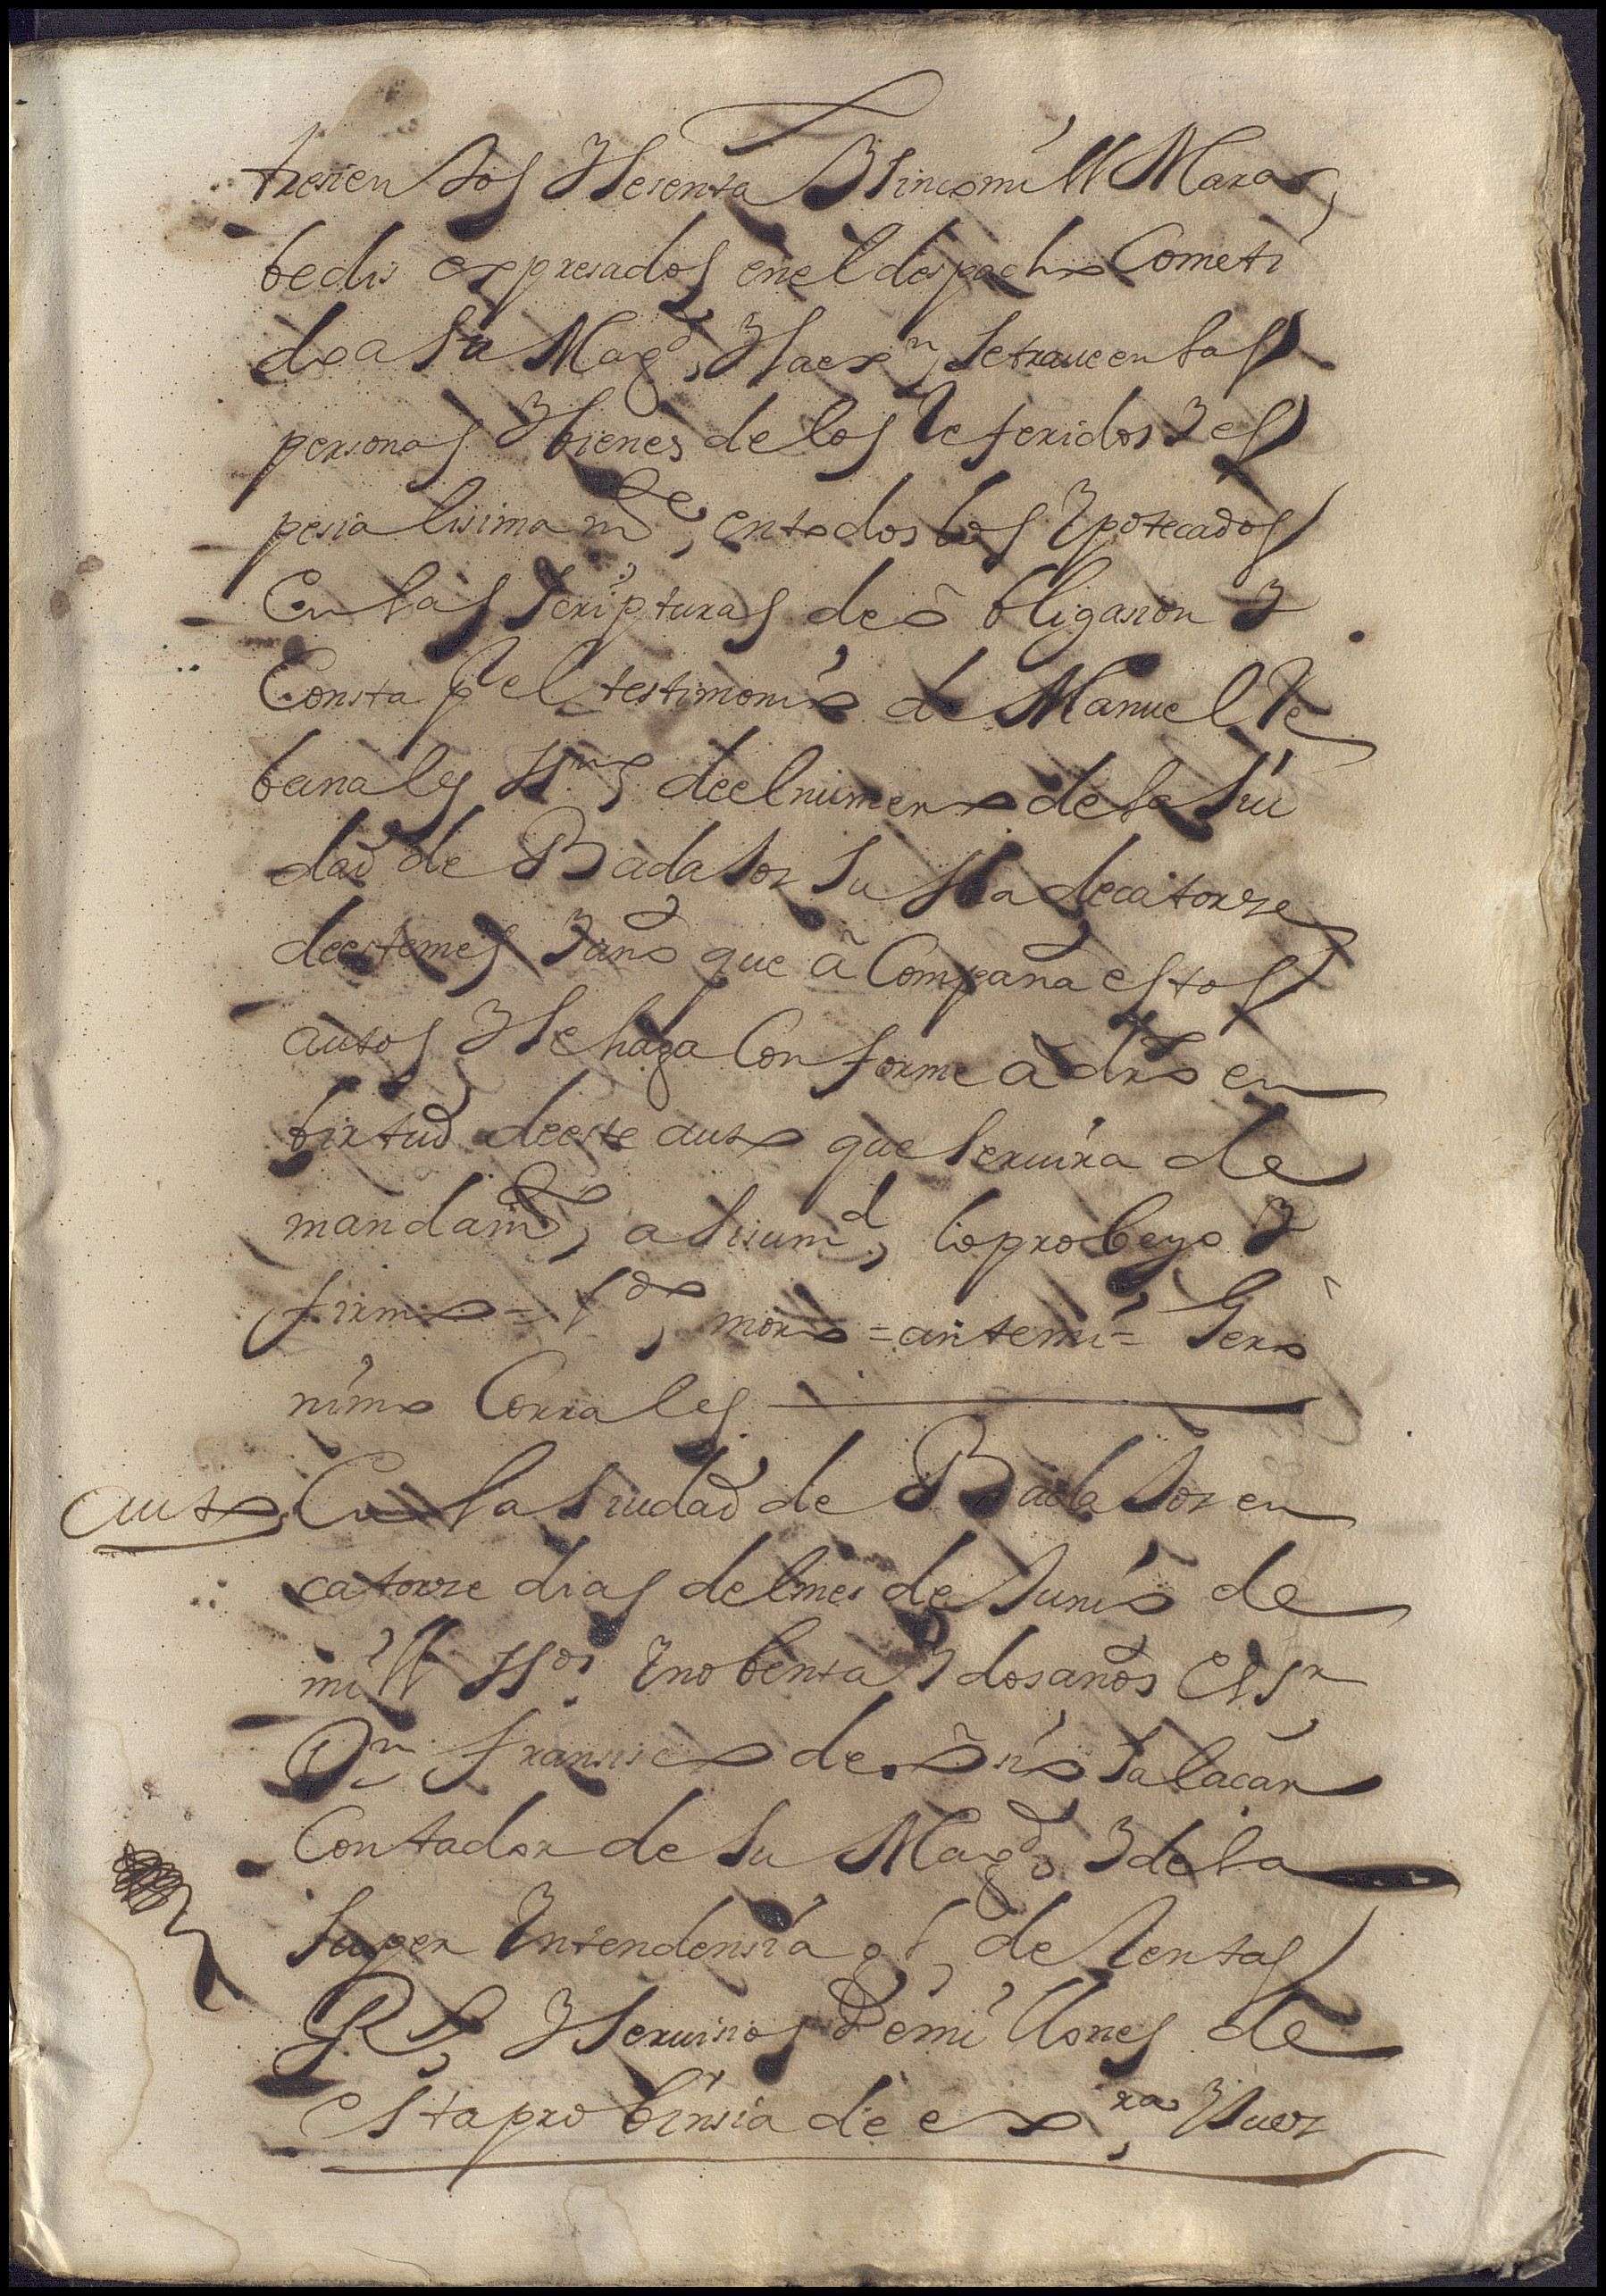 tresientos y sesenta y sinco mill Mara
bedis expresados en el despacho Cometi
do a su Magd, y la exn, se traue en las
personas y bienes de los Referidos y es
pesialisimamte, en todos los ypotecados
En las scripturas de obligasion y
Consta pr el testimonio de Manuel Re
banales ssno de el numero de la siu
dad de Badajoz su fha de catorze
de este mes y año que acompaña estos
autos y se haga Conforme a dro en
birtud de este auto que seruira de
mandamto, assi su md, lo probeyo y
firmo = ldo, moro = ante mi = Gero
nimo Corrales
auto En la siudad de Badajoz en
catorze dias del mes de Junio de
mill ssos y nobenta y dos años El Sr
Dn fransisco de osio salacar
Contador de su Magd, y de la
super Yntendensia gl, de Rentas
Rs, y seruisios de millones de
esta probinsia de exra, y Juez